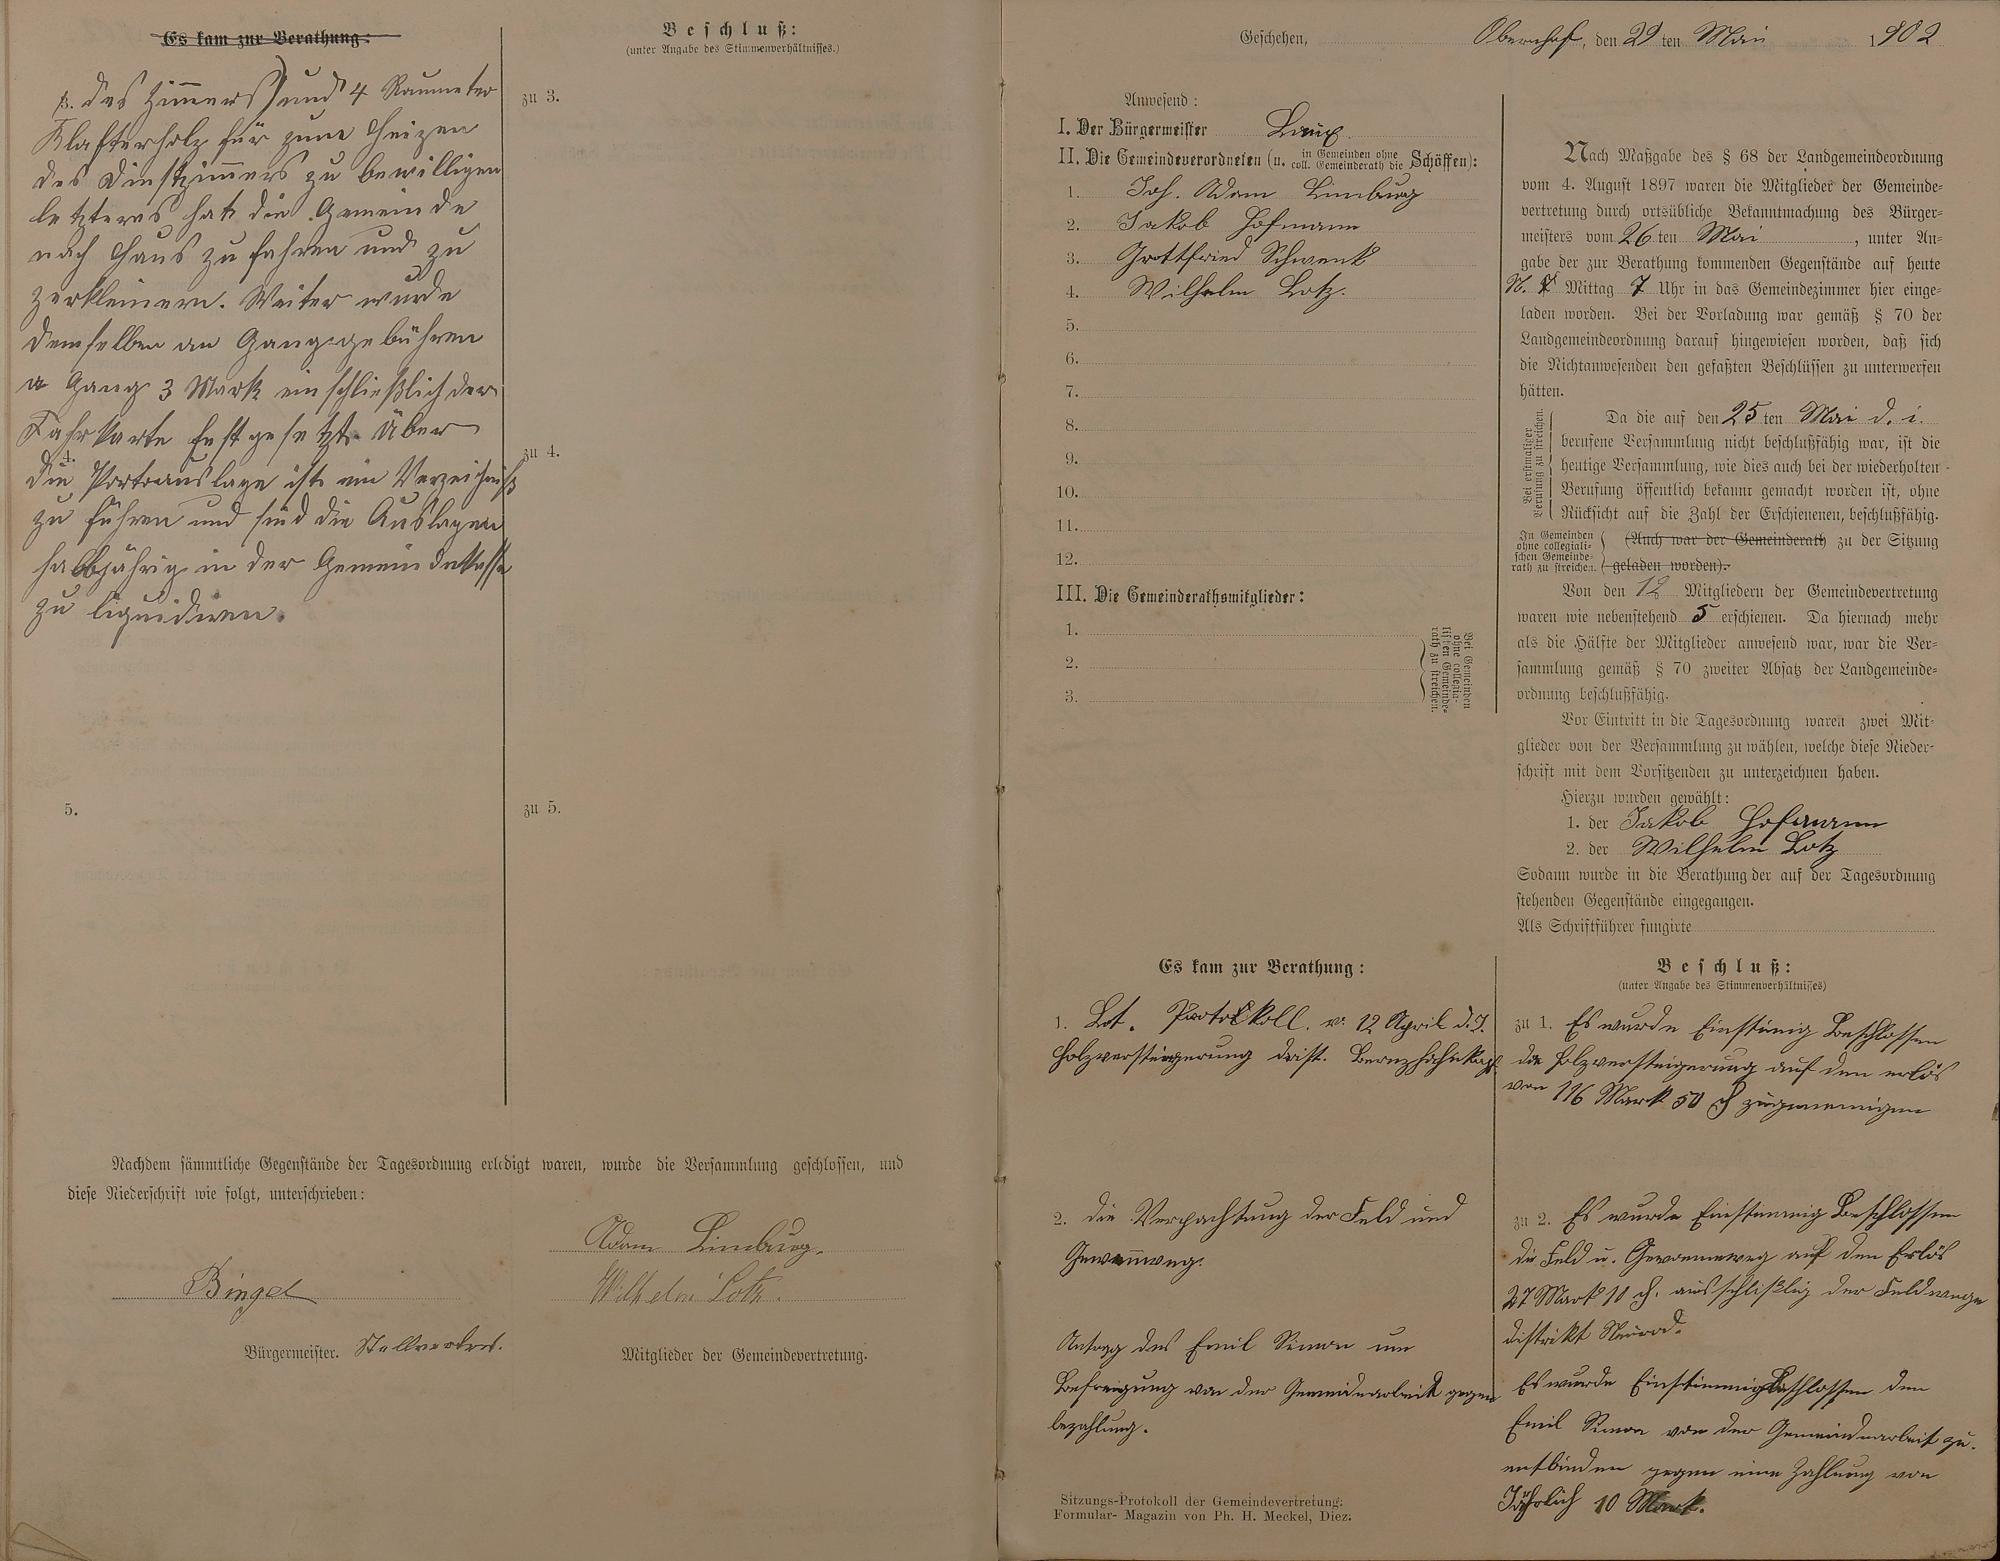 Es kam zur Berathung:
Beschluß:
(unter Angabe des Stimmenverhältnisses.)
3. des Zimmers) und 4 Raumeter
Klafterholz für zum Heizen
des Dinstzimmers zu bewilligen
letzteres hat die Gemeinde
nach Haus zu fahren und zu
zerkleinern. Weiter wurde
demselben an Ganggebühren
a Gang 3 Mark einschließlich der
Fahrkarte festgesetzt. Über
4. die Portoauslage ist ein Verzeichniß
zu führen und sind die Auslagen
halbjährig in der Gemeindekasse
zu liquidiren.
5.
zu 3.
zu 4.
zu 5.
Nachdem sämmtliche Gegenstände der Tagesordnung erledigt waren, wurde die Versammlung geschlossen, und
diese Niederschrift wie folgt, unterschrieben:
Adam Limburg.
Bingel
Wilhelm Lotz.
Bürgermeister. Stellvertret.
Mitglieder der Gemeindevertretung.
Geschehen, Obernhof, den 29ten Mai 1902
Anwesend:
I. Der Bürgermeister Laux
II. Die Gemeindeverordneten (u. in Gemeinden ohne coll. Gemeinderath die Schöffen):
1. Joh. Adam Limburg
2. Jakob Hofmann
3. Gottfried Schwenk
4. Wilhelm Lotz.
5.
6.
7.
8.
9.
10.
11.
12.
III. Die Gemeinderathsmitglieder:
1.
2.
3.
Bei Gemeinden
ohne collegia-
lischen Gemeinde-
rath zu streichen.
Nach Maßgabe des § 68 der Landgemeindeordnung
vom 4. August 1897 waren die Mitglieder der Gemeinde-
vertretung durch ortsübliche Bekanntmachung des Bürger-
meisters vom 26ten Mai, unter An-
gabe der zur Berathung kommenden Gegenstände auf heute
N. Mittag 7 Uhr in das Gemeindezimmer hier einge-
laden worden. Bei der Vorladung war gemäß § 70 der
Landgemeindeordnung darauf hingewiesen worden, daß sich
die Nichtanwesenden den gefaßten Beschlüssen zu unterwerfen
hätten.
Bei erstmaliger
Berufung zu streichen.
Da die auf den 25ten Mai d. i.
berufene Versammlung nicht beschlußfähig war, ist die
heutige Versammlung, wie dies auch bei der wiederholten
Berufung öffentlich bekannt gemacht worden ist, ohne
Rücksicht auf die Zahl der Erschienenen, beschlußfähig.
In Gemeinden
ohne collegiali-
schen Gemeinde-
rath zu streichen.
(Auch war der Gemeinderath zu der Sitzung
geladen worden).
Von den 12 Mitgliedern der Gemeindevertretung
waren wie nebenstehend 5 erschienen. Da hiernach mehr
als die Hälfte der Mitglieder anwesend war, war die Ver-
sammlung gemäß § 70 zweiter Absatz der Landgemeinde-
ordnung beschlußfähig.
Vor Eintritt in die Tagesordnung waren zwei Mit-
glieder von der Versammlung zu wählen, welche diese Nieder-
schrift mit dem Vorsitzenden zu unterzeichnen haben.
Hierzu wurden gewählt:
1. der Jakob Hofmann
2. der Wilhelm Lotz
Sodann wurde in die Berathung der auf der Tagesordnung
stehenden Gegenstände eingegangen.
Als Schriftführer fungirte
Es kam zur Berathung:
1. Bet. Protokoll. v. 12 April d. J.
Holzversteigerung Dist.
2. die Verpachtung der Feld und
Gewannweg.
Antrag des Emil Simon um
Befreigung von der Gemeindearbeit gegen
bezahlung.
Beschluß:
(unter Angabe des Stimmenverhältnisses)
zu 1. Es wurde Einstimig Beschlossen
die Holzversteigerung auf den erlös
von 116 Mark 50 ₰ zugenemigen
zu 2. Es wurde Einstimmig Beschlossen
die Feld u. Gewanneweg auf den Erlös
27 Mark 11 ₰. ausschlißlig der Feldwege
distrikt Neurod.
Es wurde Einstimmig Beschlossen den
Emil Simon von der Gemeindearbeit zu
entbinden gegen eine Zahlung von
Jährlich 10 Mark.
Sitzungs-Protokoll der Gemeindevertretung.
Formular-Magazin von Ph. H. Meckel, Diez.